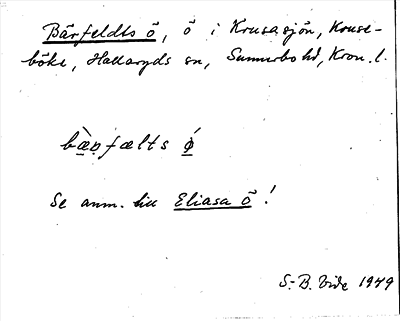 Bärfeldts ö, ö i Krusasjön, Kruse-
böke, Hallaryds sn, Sunnerbo hd, Kron. l.
bæ̀ṇfælts ǿ
Se anm. till Eliasa ö!
S.-B. Vide 1979